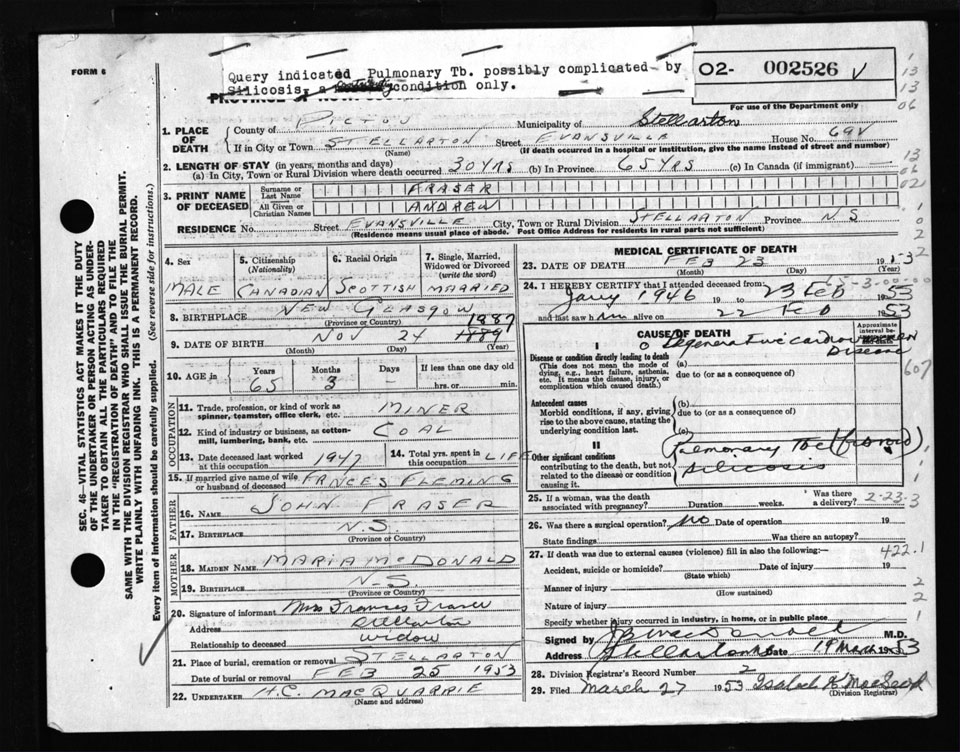 FORM 6
Query indicated Pulmonary Tb. possibly complicated by
Silicosis, a condition only.
O2- 002526 v
For use of the Department only
1. PLACE OF DEATH
County of PICTOU Municipality of Stellarton
If in City or Town STELLARTON Street EVANSVILLE House No. 69V
(Name) (If death occurred in a hospital or institution, give the name instead of street and number)
2. LENGTH OF STAY (in years, months and days)
(a) In City, Town or Rural Division where death occurred 30 YRS (b) In Province 65 YRS (c) In Canada (if immigrant)
3. PRINT NAME OF DECEASED
Surname or Last Name FRASER
All Given or Christian Names ANDREW
RESIDENCE No. Street EVANSVILLE City, Town or Rural Division STELLARTON Province N.S
(Residence means usual place of abode. Post Office Address for residents in rural parts not sufficient)
4. Sex MALE
5. Citizenship (Nationality) CANADIAN
6. Racial Origin SCOTTISH
7. Single, Married, Widowed or Divorced (write the word) MARRIED
8. BIRTHPLACE NEW GLASGOW
(Province or Country)
9. DATE OF BIRTH NOV 24 1887 1889
(Month) (Day) (Year)
10. AGE in Years 65 Months 3 Days If less than one day old hrs. or min.
OCCUPATION
11. Trade, profession, or kind of work as spinner, teamster, office clerk, etc. MINER
12. Kind of industry or business, as cotton-mill, lumbering, bank, etc. COAL
13. Date deceased last worked at this occupation 1947 14. Total yrs. spent in this occupation LIFE
15. If married give name of wife or husband of deceased FRNCES FLEMING
FATHER
16. NAME JOHN FRASER
17. BIRTHPLACE N.S.
(Province or Country)
MOTHER
18. MAIDEN NAME MARIA McDONALD
19. BIRTHPLACE N.S.
(Province or Country)
20. Signature of informant Mrs Frances Fraser
Address Stellarton
Relationship to deceased widow
21. Place of burial, cremation or removal STELLARTON
Date of burial or removal FEB 25 1953
22. UNDERTAKER H.C. MACQUARRIE
(Name and address)
MEDICAL CERTIFICATE OF DEATH
23. DATE OF DEATH FEB 23
(Month) (Day) (Year)
24. I HEREBY CERTIFY that I attended deceased from:
Jany 1946 19 to 23 Feb 1953
and last saw him alive on 22 Feb 1953
CAUSE OF DEATH
Approximate interval between
I
Disease or condition directly leading to death
(This does not mean the mode of dying, e.g., heart failure, asthenia, etc. It means the disease, injury, or complication which caused death.)
Degenerative Disease
(a)
due to (or as a consequence of)
Antecedent causes
Morbid conditions, if any, giving rise to the above cause, stating the underlying condition last.
(b)
due to (or as a consequence of)
(c)
II
Other significant conditions contributing to the death, but not related to the disease or condition causing it.
Pulmonary Tbc (fibroid)
silicosis
607
25. If a woman, was the death associated with pregnancy? Duration weeks. Was there a delivery? 2-23-3
26. Was there a surgical operation? No Date of operation 19
State findings Was there an autopsy?
27. If death was due to external causes (violence) fill in also the following:— 422.1
Accident, suicide or homicide? Date of injury 19
(State which)
Manner of injury
(How sustained)
Nature of injury
Specify whether injury occurred in industry, in home, or in public place
Signed by M.D.
Address Stellarton NS Date 19 March 1953
28. Division Registrar's Record Number 2
29. Filed March 27 1953 Isabel K MacLeod
(Division Registrar)
SEC. 46—VITAL STATISTICS ACT MAKES IT THE DUTY
OF THE UNDERTAKER OR PERSON ACTING AS UNDER-
TAKER TO OBTAIN ALL THE PARTICULARS REQUIRED
IN THE "REGISTRATION OF DEATH" AND TO FILE THE
SAME WITH THE DIVISION REGISTRAR WHO SHALL ISSUE THE BURIAL PERMIT.
WRITE PLAINLY WITH UNFADING INK. THIS IS A PERMANENT RECORD.
Every item of information should be carefully supplied. (See reverse side for instructions.)